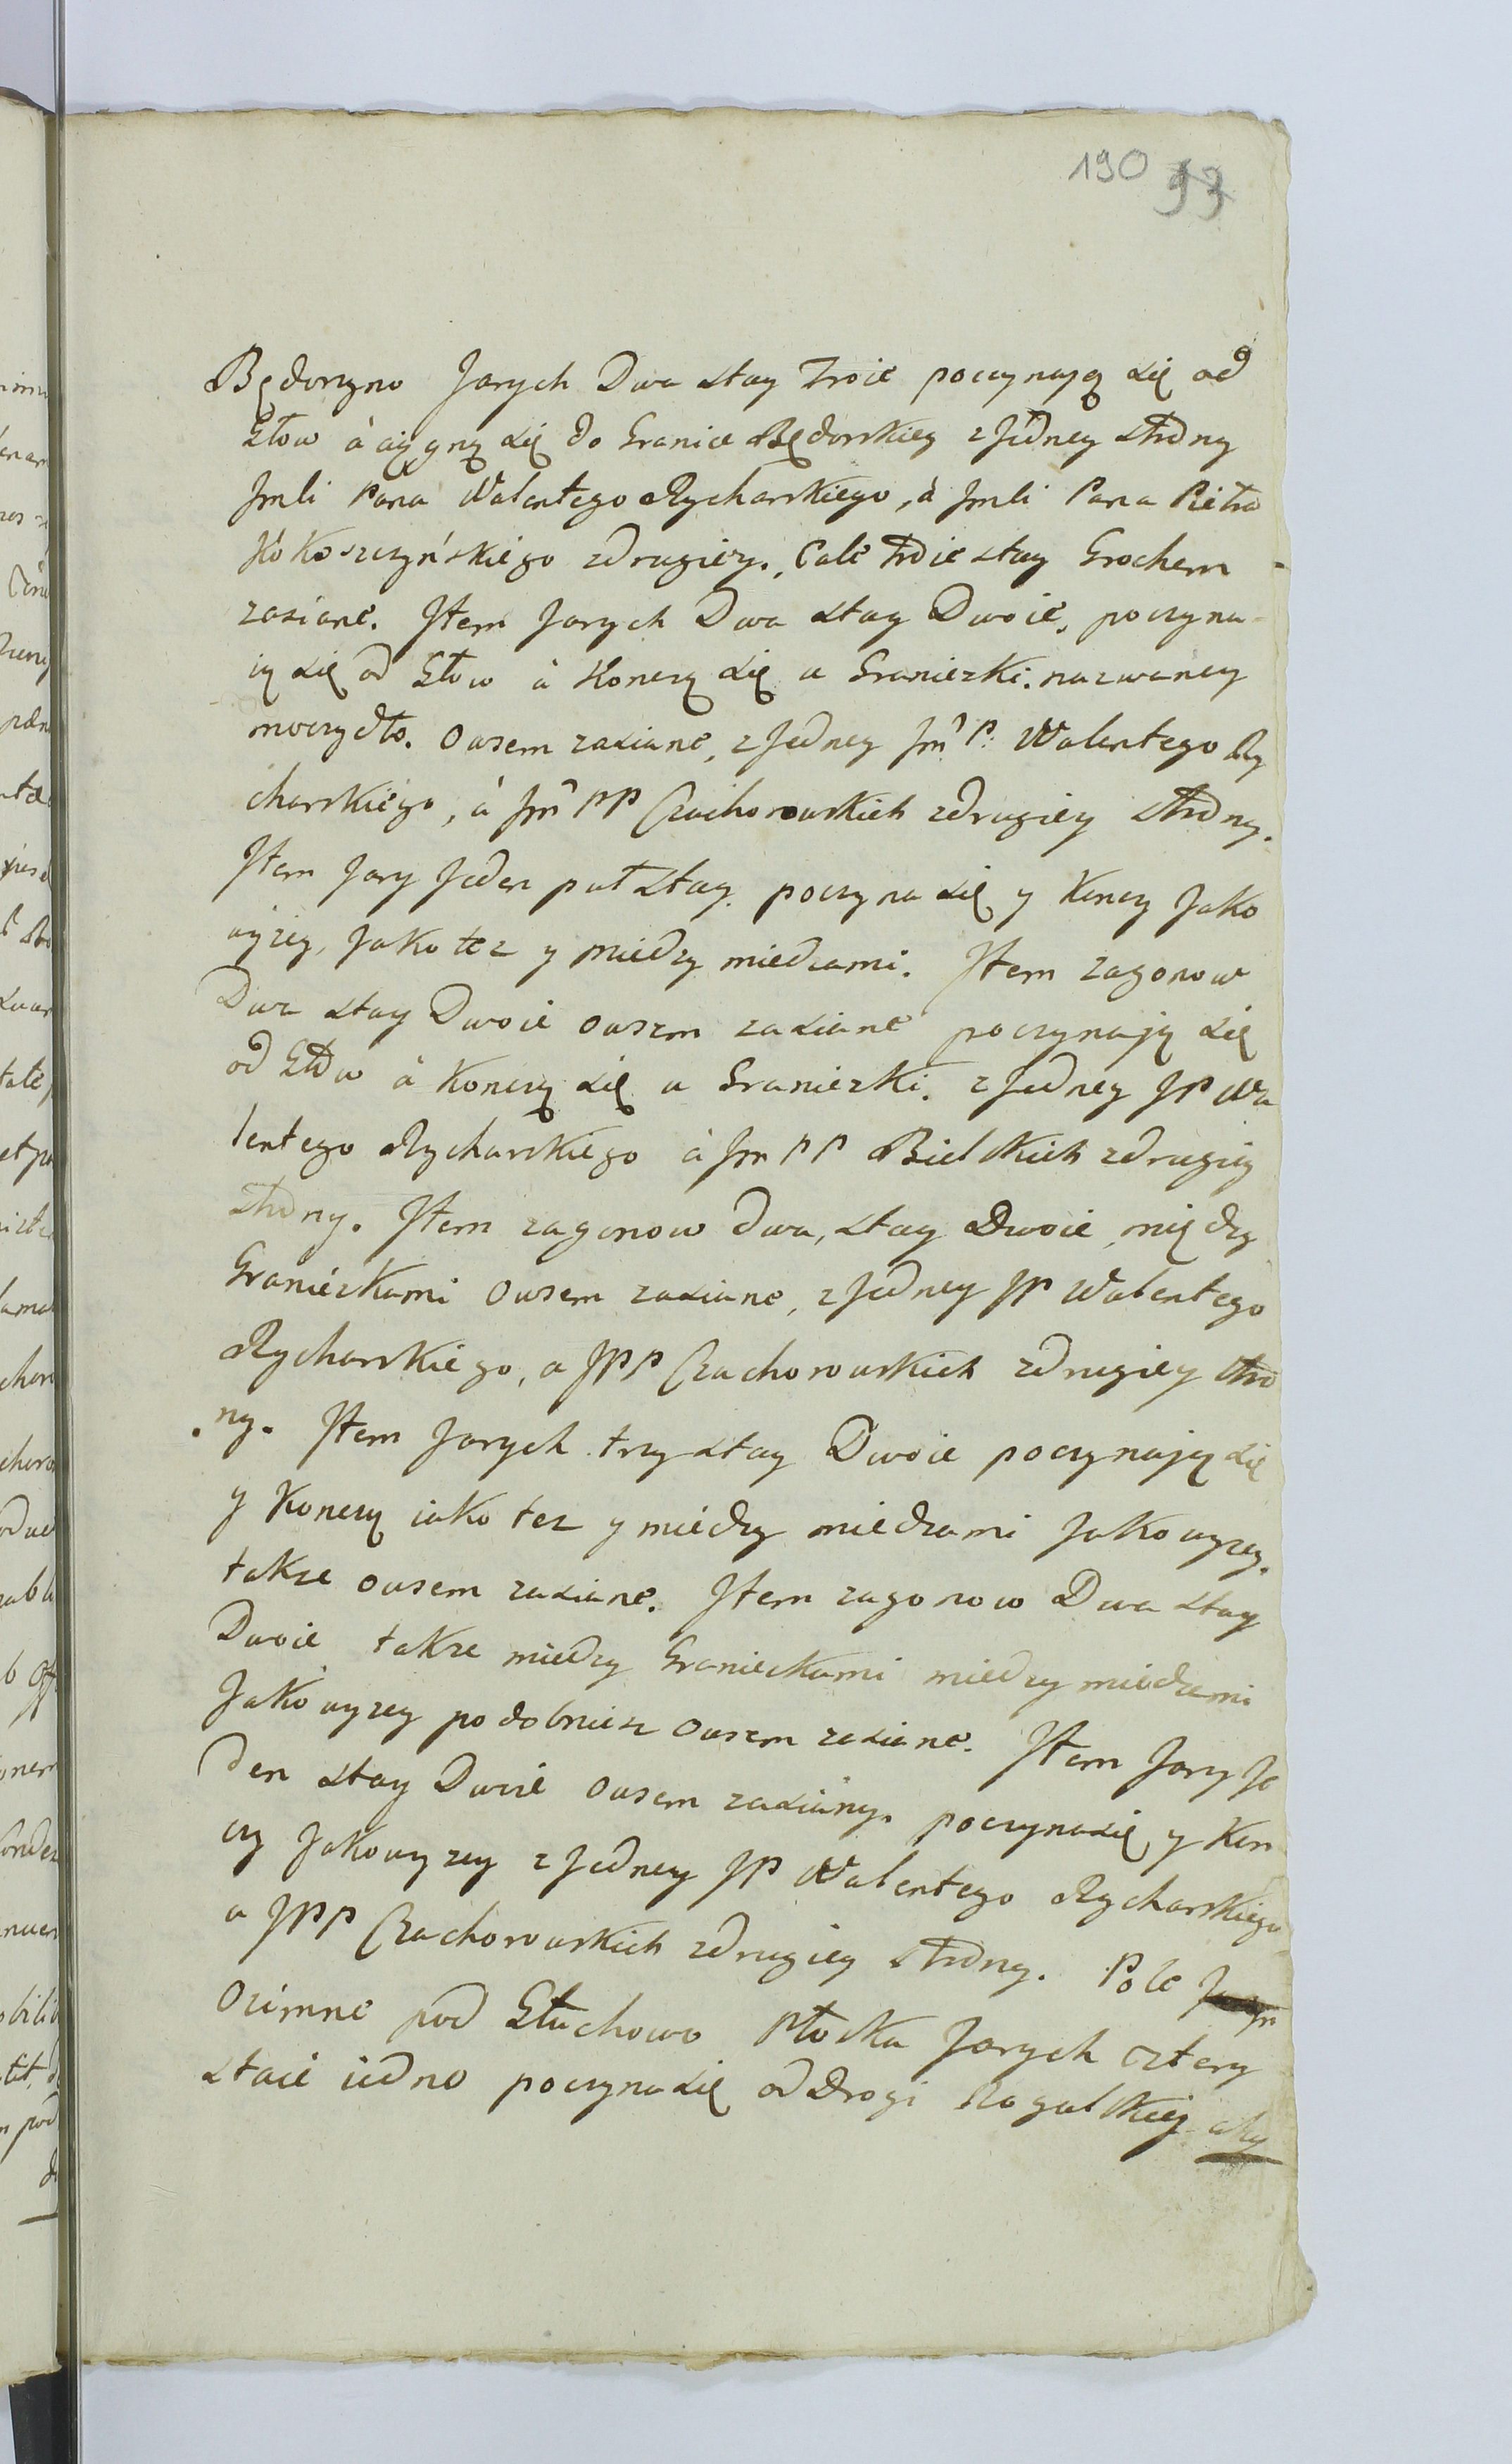 190 93
Będorzyno Jarych Dwa stay Troie poczynają się od
Głow à ciągną się do Granice Będorskiey z Jedney strony
Jmli Pana Walentego Rycharskiego, à Jmli Pana Pietra
Kokoszczyńskiego z drugiey. Cale troie stay Grochem
zasiane. Item Jarych Dwa stay Dwoie, poczyna-
ią się od Głow à Konczą się u Graniczki nazwaney
moczydło. Owsem zasiane, z Jedney Jm P: Walentego Ry
charskiego, à Jm PP Czachorowskich z drugiey strony.
Item Jary Jeden puł stay poczyna się y Konczy Jako
wyzey, Jako tez y miedzy miedzami. Item zagonow
Dwa stay Dwoie owsem zasiane poczynają się
od Głow à Konczą się u Graniczki. z Jedney JP Wa
lentego Rycharskiego à Jm PP Bielskich z drugiey
strony. Item zagonow dwa, stay Dwoie, między
Graniczkami Owsem zasiane, z Jedney JP Walentego
Rycharskiego, a JPP Czachorowskich z drugiey stro
ny. Item Jarych trzy stay Dwoie poczynają się
y Konczą iako tez y miedzy miedzami Jako wyzey.
takze owsem zasiane. Item zagonow Dwa stay
Dwoie takze miedzy Graniczkami miedzy miedzami
Jako wyzey podobniesz Owsem zasiane. Item Jary Je
den stay Dwoie Owsem zasiany. poczyna się y Kon
czy Jako wyzey z Jedney JP Walentego Rycharskiego
a JPP Czachorowskich z drugiey strony. Pole
Ozimne pod Głuchowo Płoska Jarych cztery
staie iedno poczyna się od Drogi Rogalskiey